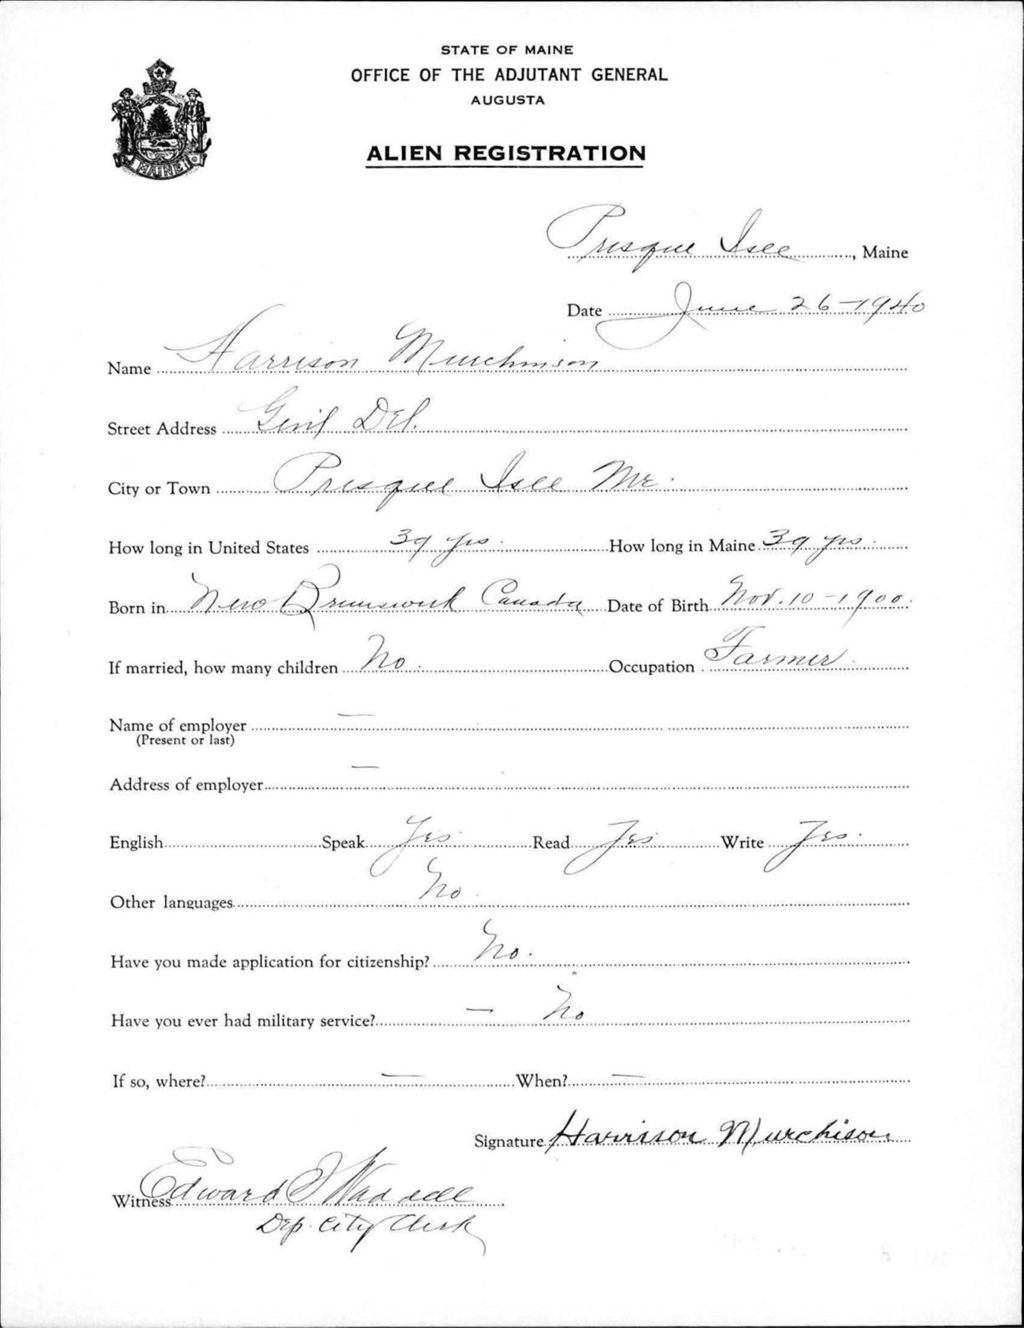 STATE OF MAINE
OFFICE OF THE ADJUTANT GENERAL
AUGUSTA
ALIEN REGISTRATION
MAINE
Presque Isle, Maine
Date June 26-1940
Name Harrison Murchinson
Street Address Genl Del.
City or Town Presque Isle Me.
How long in United States 39 yrs. How long in Maine 39 yrs.
Born in New Brunswick Canada Date of Birth Nov. 10-1900.
If married, how many children No. Occupation Farmer.
Name of employer —
(Present or last)
Address of employer —
English Speak Yes. Read Yes Write Yes.
Other languages No.
Have you made application for citizenship? No.
Have you ever had military service? — No
If so, where? — When? —
Signature Harrison Murchison
Witness Edward J Waddell
Dep. City Clerk